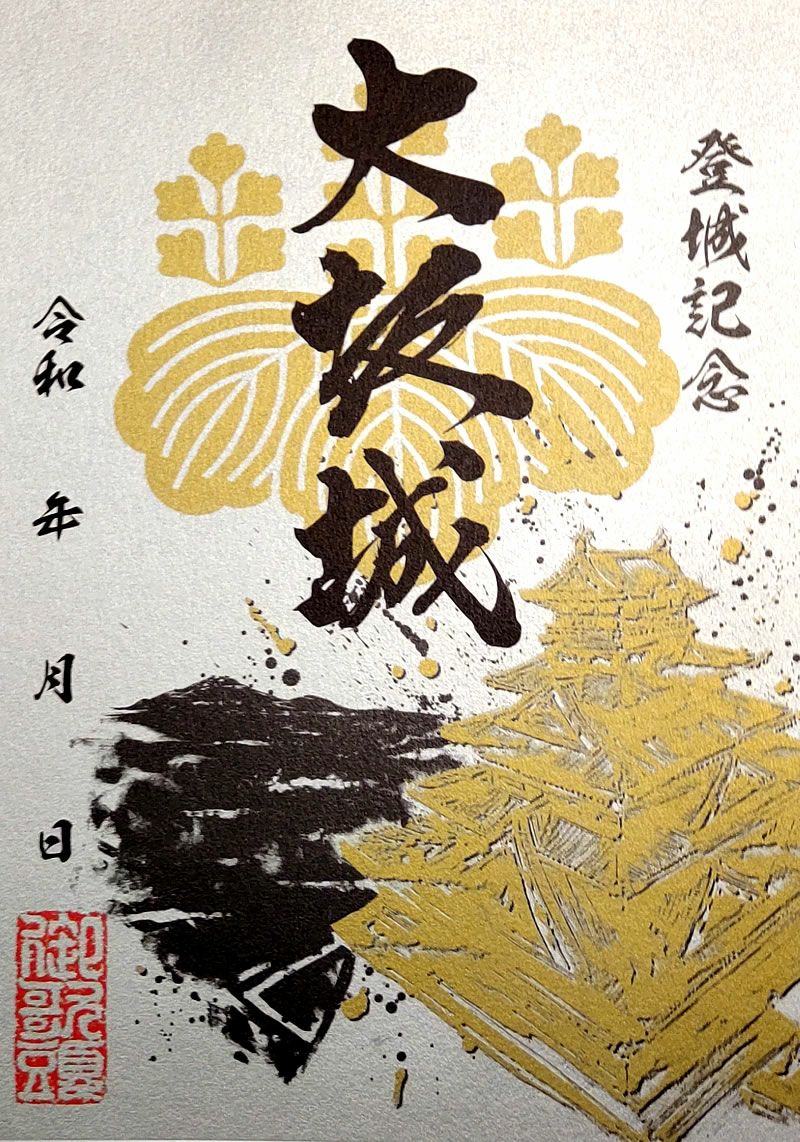 登城記念
大坂城
令和　年　月　日